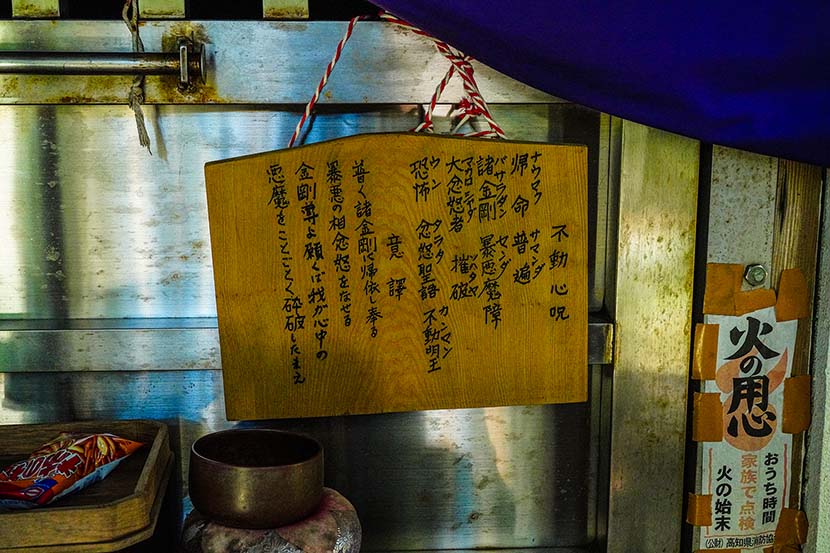 不動心呪
ナウマク サマンダ
帰命 普遍
バサラダン センダ
諸金剛 暴悪魔障
マカロシヤダ ソハタヤ
大忿怒者 摧破
ウン タラタ カンマン
恐怖 忿怒聖語 不動明王
意譯
普く諸金剛に帰依し奉る
暴悪の相忿怒をなせる
金剛尊よ願くば我が心中の
悪魔をことごとく砕破したまえ
火の用心
おうち時間
家族で点検
火の始末
(公財)高知県消防協